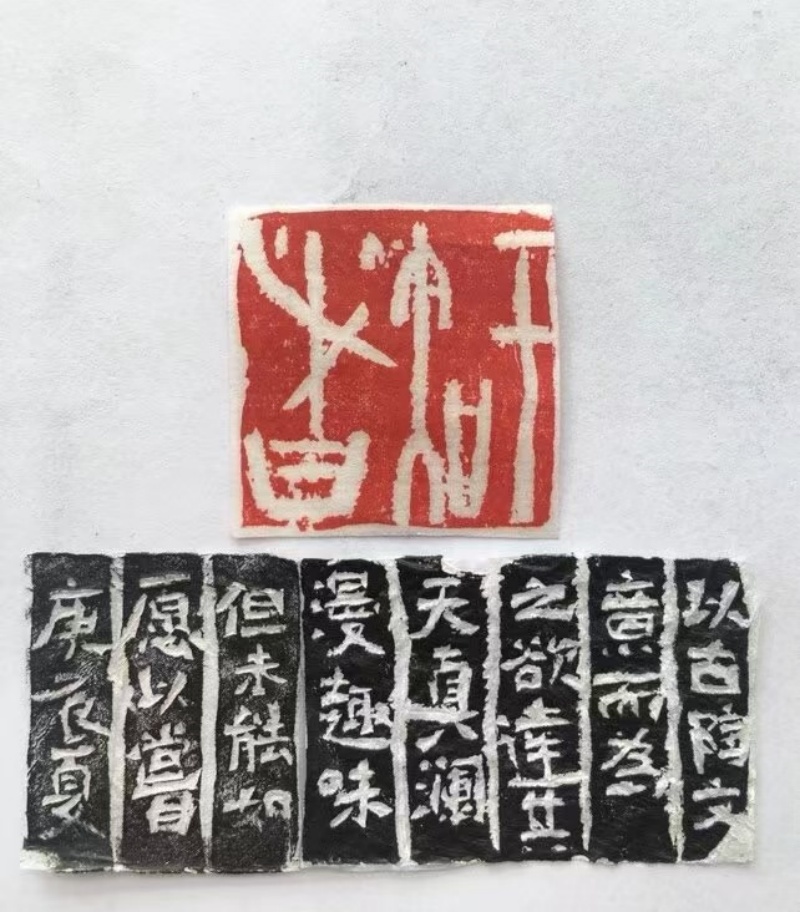 以古陶文
意而為
之欲達其
天真瀾
漫趣味
但未能如
愿以嘗
庚辰夏